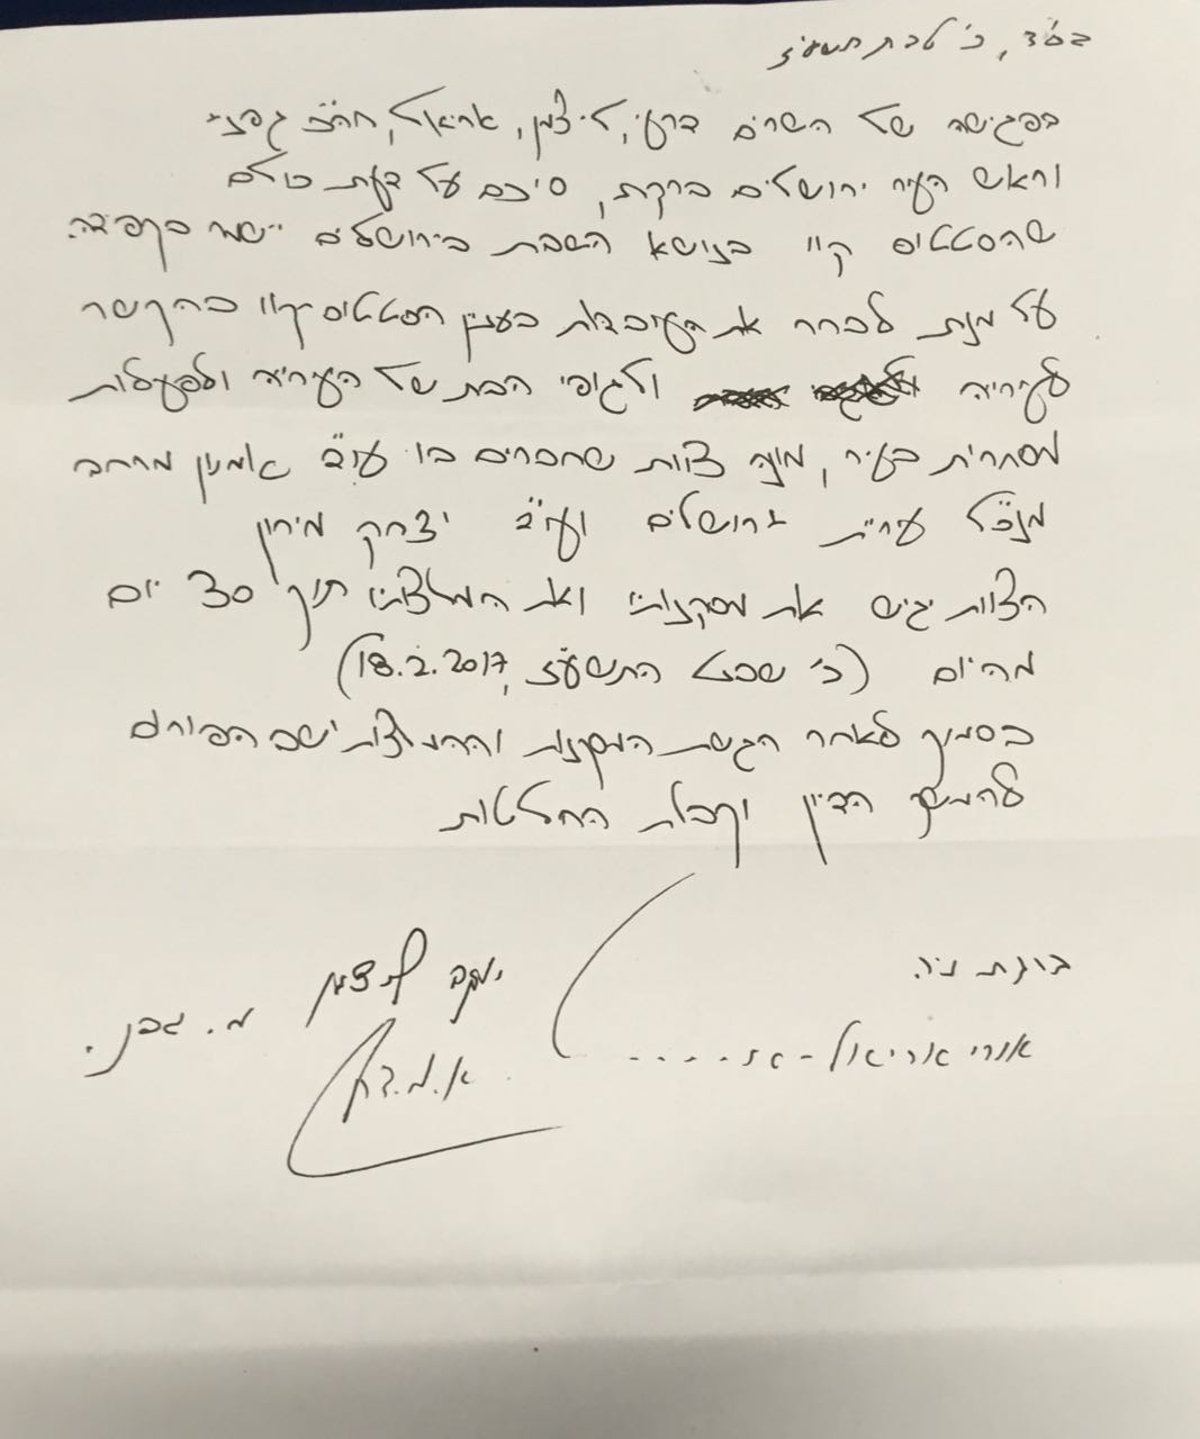 בס"ד, כ' טבת תשע"ז
בפגישה של השרים דרעי, ליצמן, אריאל, חה"כ גפני
וראש העיר ירושלים ברקת, סיכם על דעת כולם
שהסטטוס קוו בנושא השבת בירושלים יישמר בקפידה.
על מנת לברר את העובדות בעניין הסטטוס-קוו בהקשר
לעיריה ולגופי הבת של העיריה ולפעילות
מסחרית בעיר, מונה צוות שחברים בו עו"ד אמנון מרחב
מנכ"ל עירית ירושלים ועו"ד יצחק מירון
הצוות יגיש את מסקנותיו ואת המלצותיו תוך 30 יום
מהיום (כ' שבט התשע"ז, 18.2.2017)
בסמוך לאחר הגשת המסקנות וההמלצות ישב הפורום
להמשך הדיון וקבלת החלטות
יעקב ליצמן מ. גפני.
אורי אריאל -
א.מ.ד